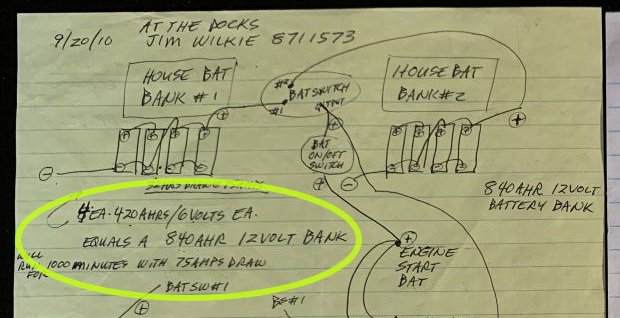 AT THE DOCKS
9/20/10 JIM WILKIE 8711573
HOUSE BAT
BANK #1
#2
BAT SWITCH
#1
OUTPUT
HOUSE BAT
BANK #2
BAT
ON/OFF
SWITCH
840AHR 12VOLT
BATTERY BANK
4 EA. 420AHRS/6VOLTS EA.
EQUALS A 840AHR 12VOLT BANK
WILL
RUN 1000 MINUTES WITH 75AMPS DRAW
FOR
ENGINE
START
BAT
BATSW#1
BS#1